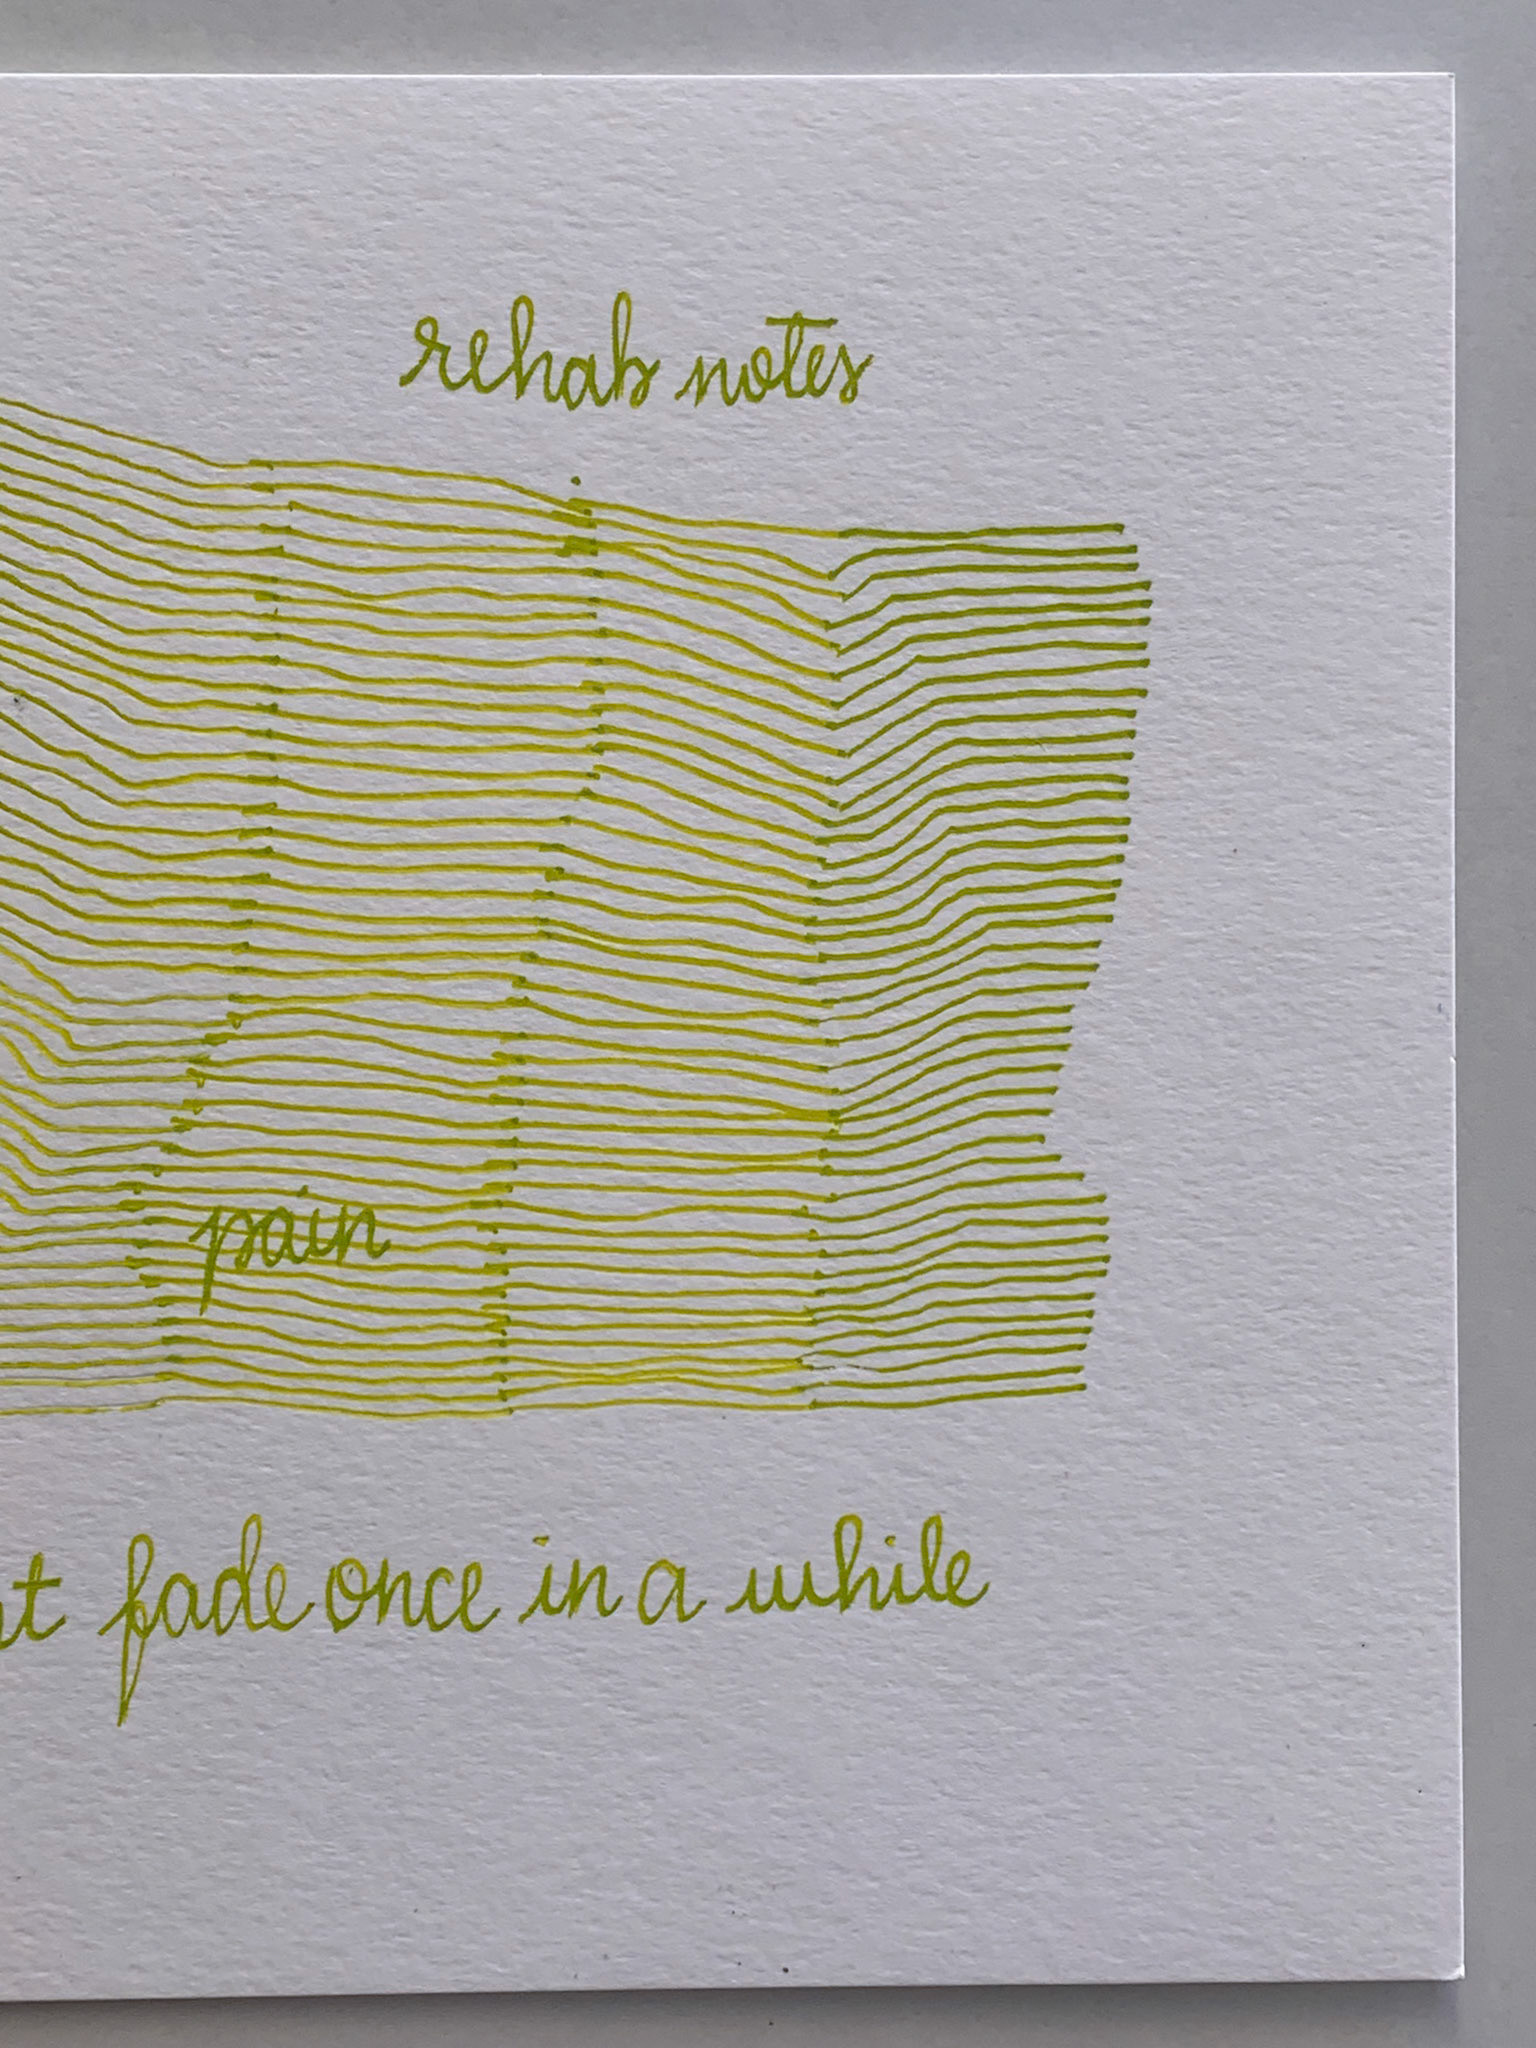 rehab notes
pain
fade once in a while